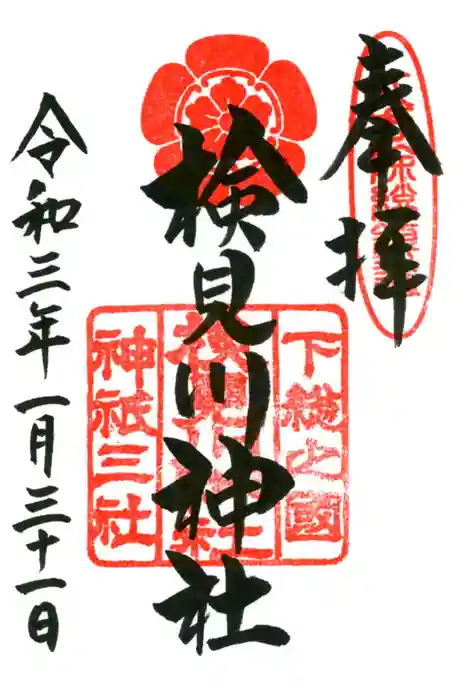 奉拝
検見川神社
下総之國
検見川神社
神祇三社
令和三年一月三十一日